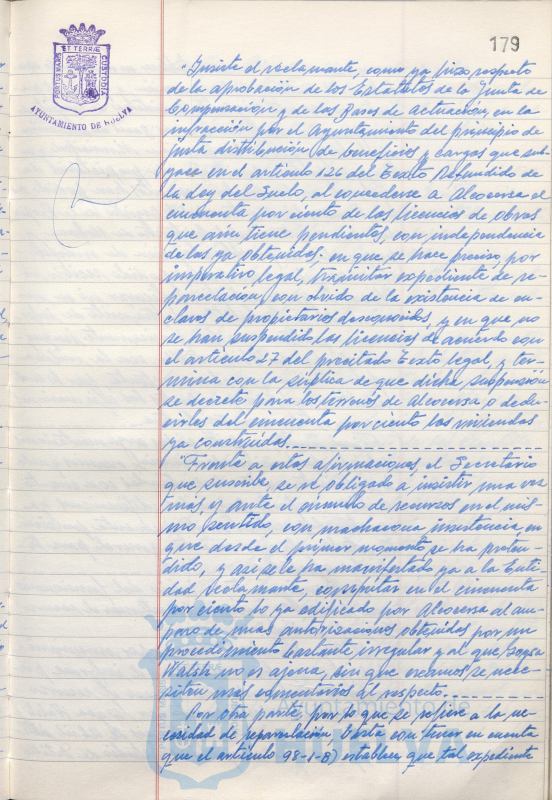 179
PORTUS MARIS ET TERRAE CUSTODIA
AYUNTAMIENTO DE HUELVA
"Insiste el reclamante, como ya hizo respecto
de la aprobación de los Estatutos de la Junta de
Compensación y de las Bases de Actuación, en la
infracción por el Ayuntamiento del principio de
justa distribución de beneficios y cargas que sub-
yace en el artículo 126 del Texto Refundido de
la Ley del Suelo, al concederse a Alcocersa el
cincuenta por ciento de las licencias de obras
que aún tiene pendientes, con independencia
de las ya obtenidas. en que se hace preciso, por
imperativo legal, tramitar expediente de re-
parcelación, con olvido de la existencia de en-
claves de propietarios desconocidos, y en que no
se han suspendido las licencias de acuerdo con
el artículo 27 del precitado Texto legal, y ter-
mina con la súplica de que dicha suspensión
se decrete para los terrenos de Alcocersa o dedu-
cirles del cincuenta por ciento las viviendas
ya construidas.
"Frente a estas afirmaciones, el Secretario
que suscribe, se ve obligado a insistir una vez
más, y ante el cúmulo de recursos en el mis-
mo sentido, con machacona insistencia en
que desde el primer momento se ha preten-
dido, y así se le ha manifestado ya a la Enti-
dad reclamante, computar en el cincuenta
por ciento lo ya edificado por Alcocersa al am-
paro de unas autorizaciones obtenidas por un
procedimiento bastante irregular y al que
Walsh no es ajena, sin que creamos se nece-
siten más comentarios al respecto.
Por otra parte, por lo que se refiere a la ne-
cesidad de reparcelación, basta con tener en cuenta
que el artículo 98-1-B) establece que tal expediente
Ayuntamiento de